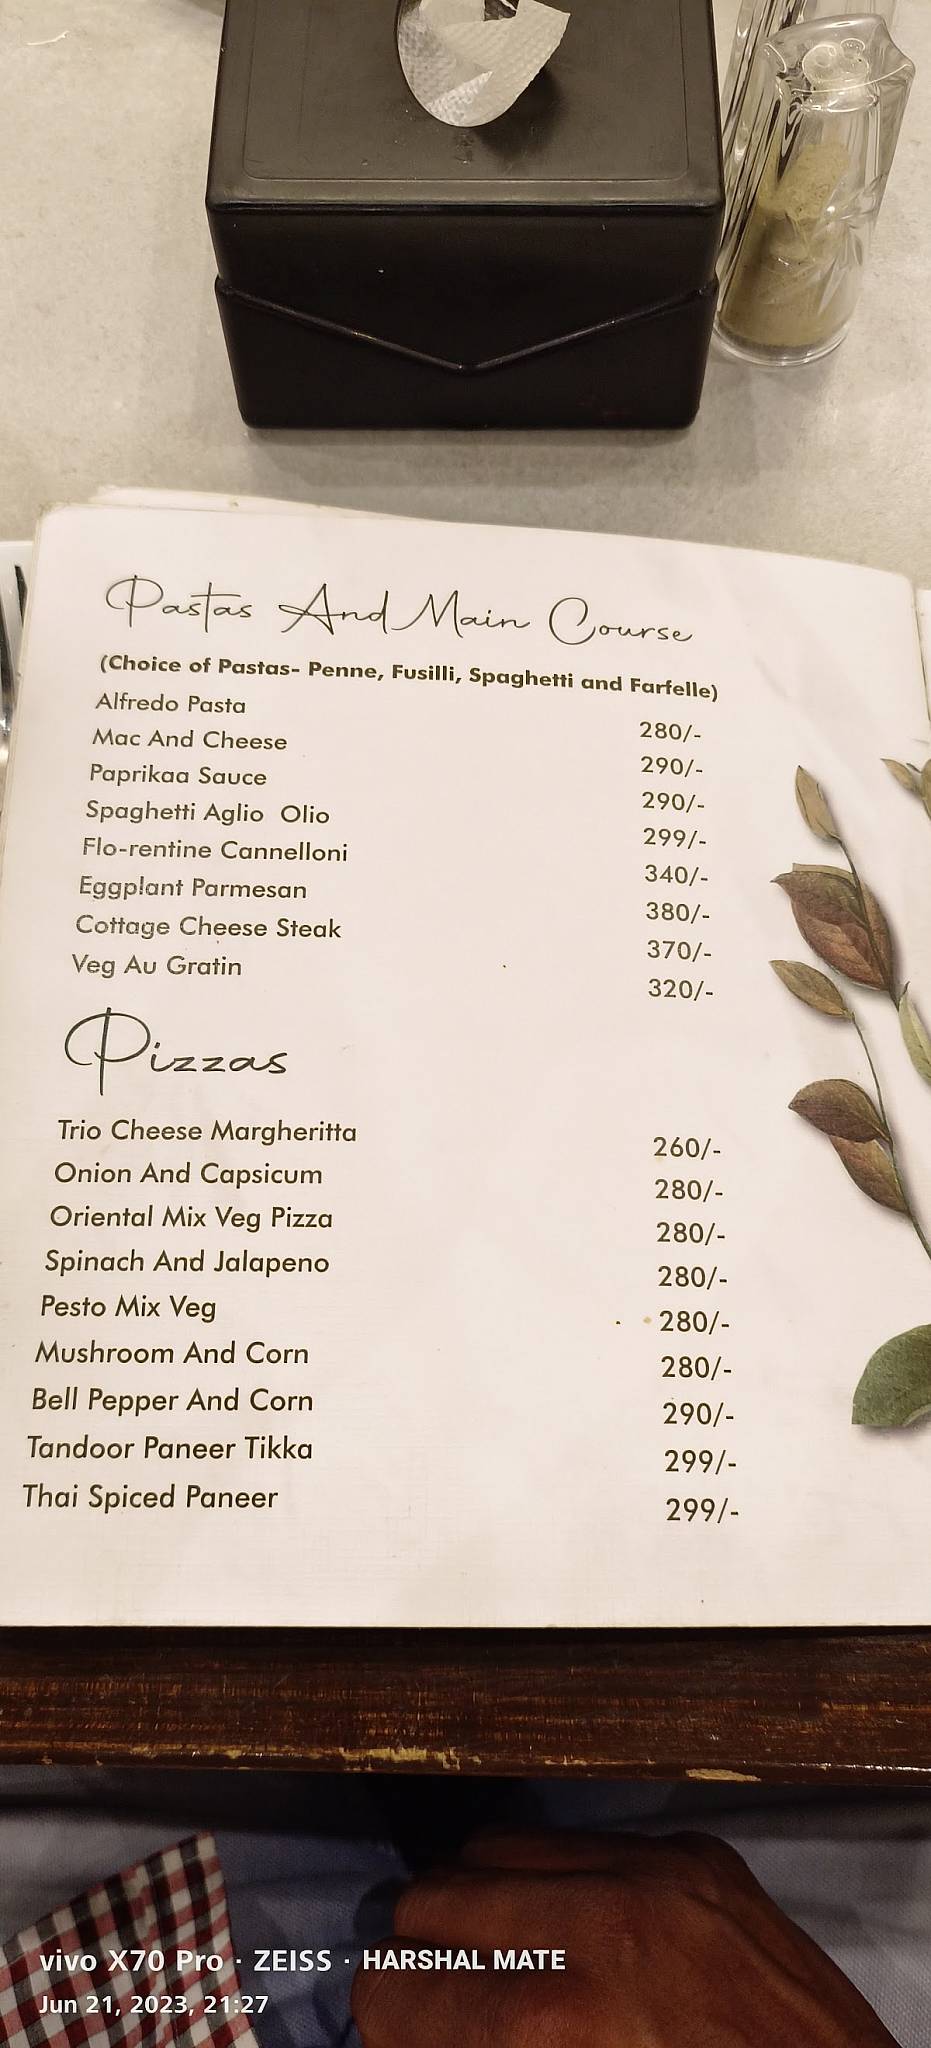 Pastas And Main Course
(Choice of Pastas- Penne, Fusilli, Spaghetti and Farfelle)
Alfredo Pasta 280/-
Mac And Cheese 290/-
Paprikaa Sauce 290/-
Spaghetti Aglio Olio 299/-
Flo-rentine Cannelloni 340/-
Eggplant Parmesan 380/-
Cottage Cheese Steak 370/-
Veg Au Gratin 320/-
Pizzas
Trio Cheese Margheritta 260/-
Onion And Capsicum 280/-
Oriental Mix Veg Pizza 280/-
Spinach And Jalapeno 280/-
Pesto Mix Veg 280/-
Mushroom And Corn 280/-
Bell Pepper And Corn 290/-
Tandoor Paneer Tikka 299/-
Thai Spiced Paneer 299/-
vivo X70 Pro · ZEISS · HARSHAL MATE
Jun 21, 2023, 21:27